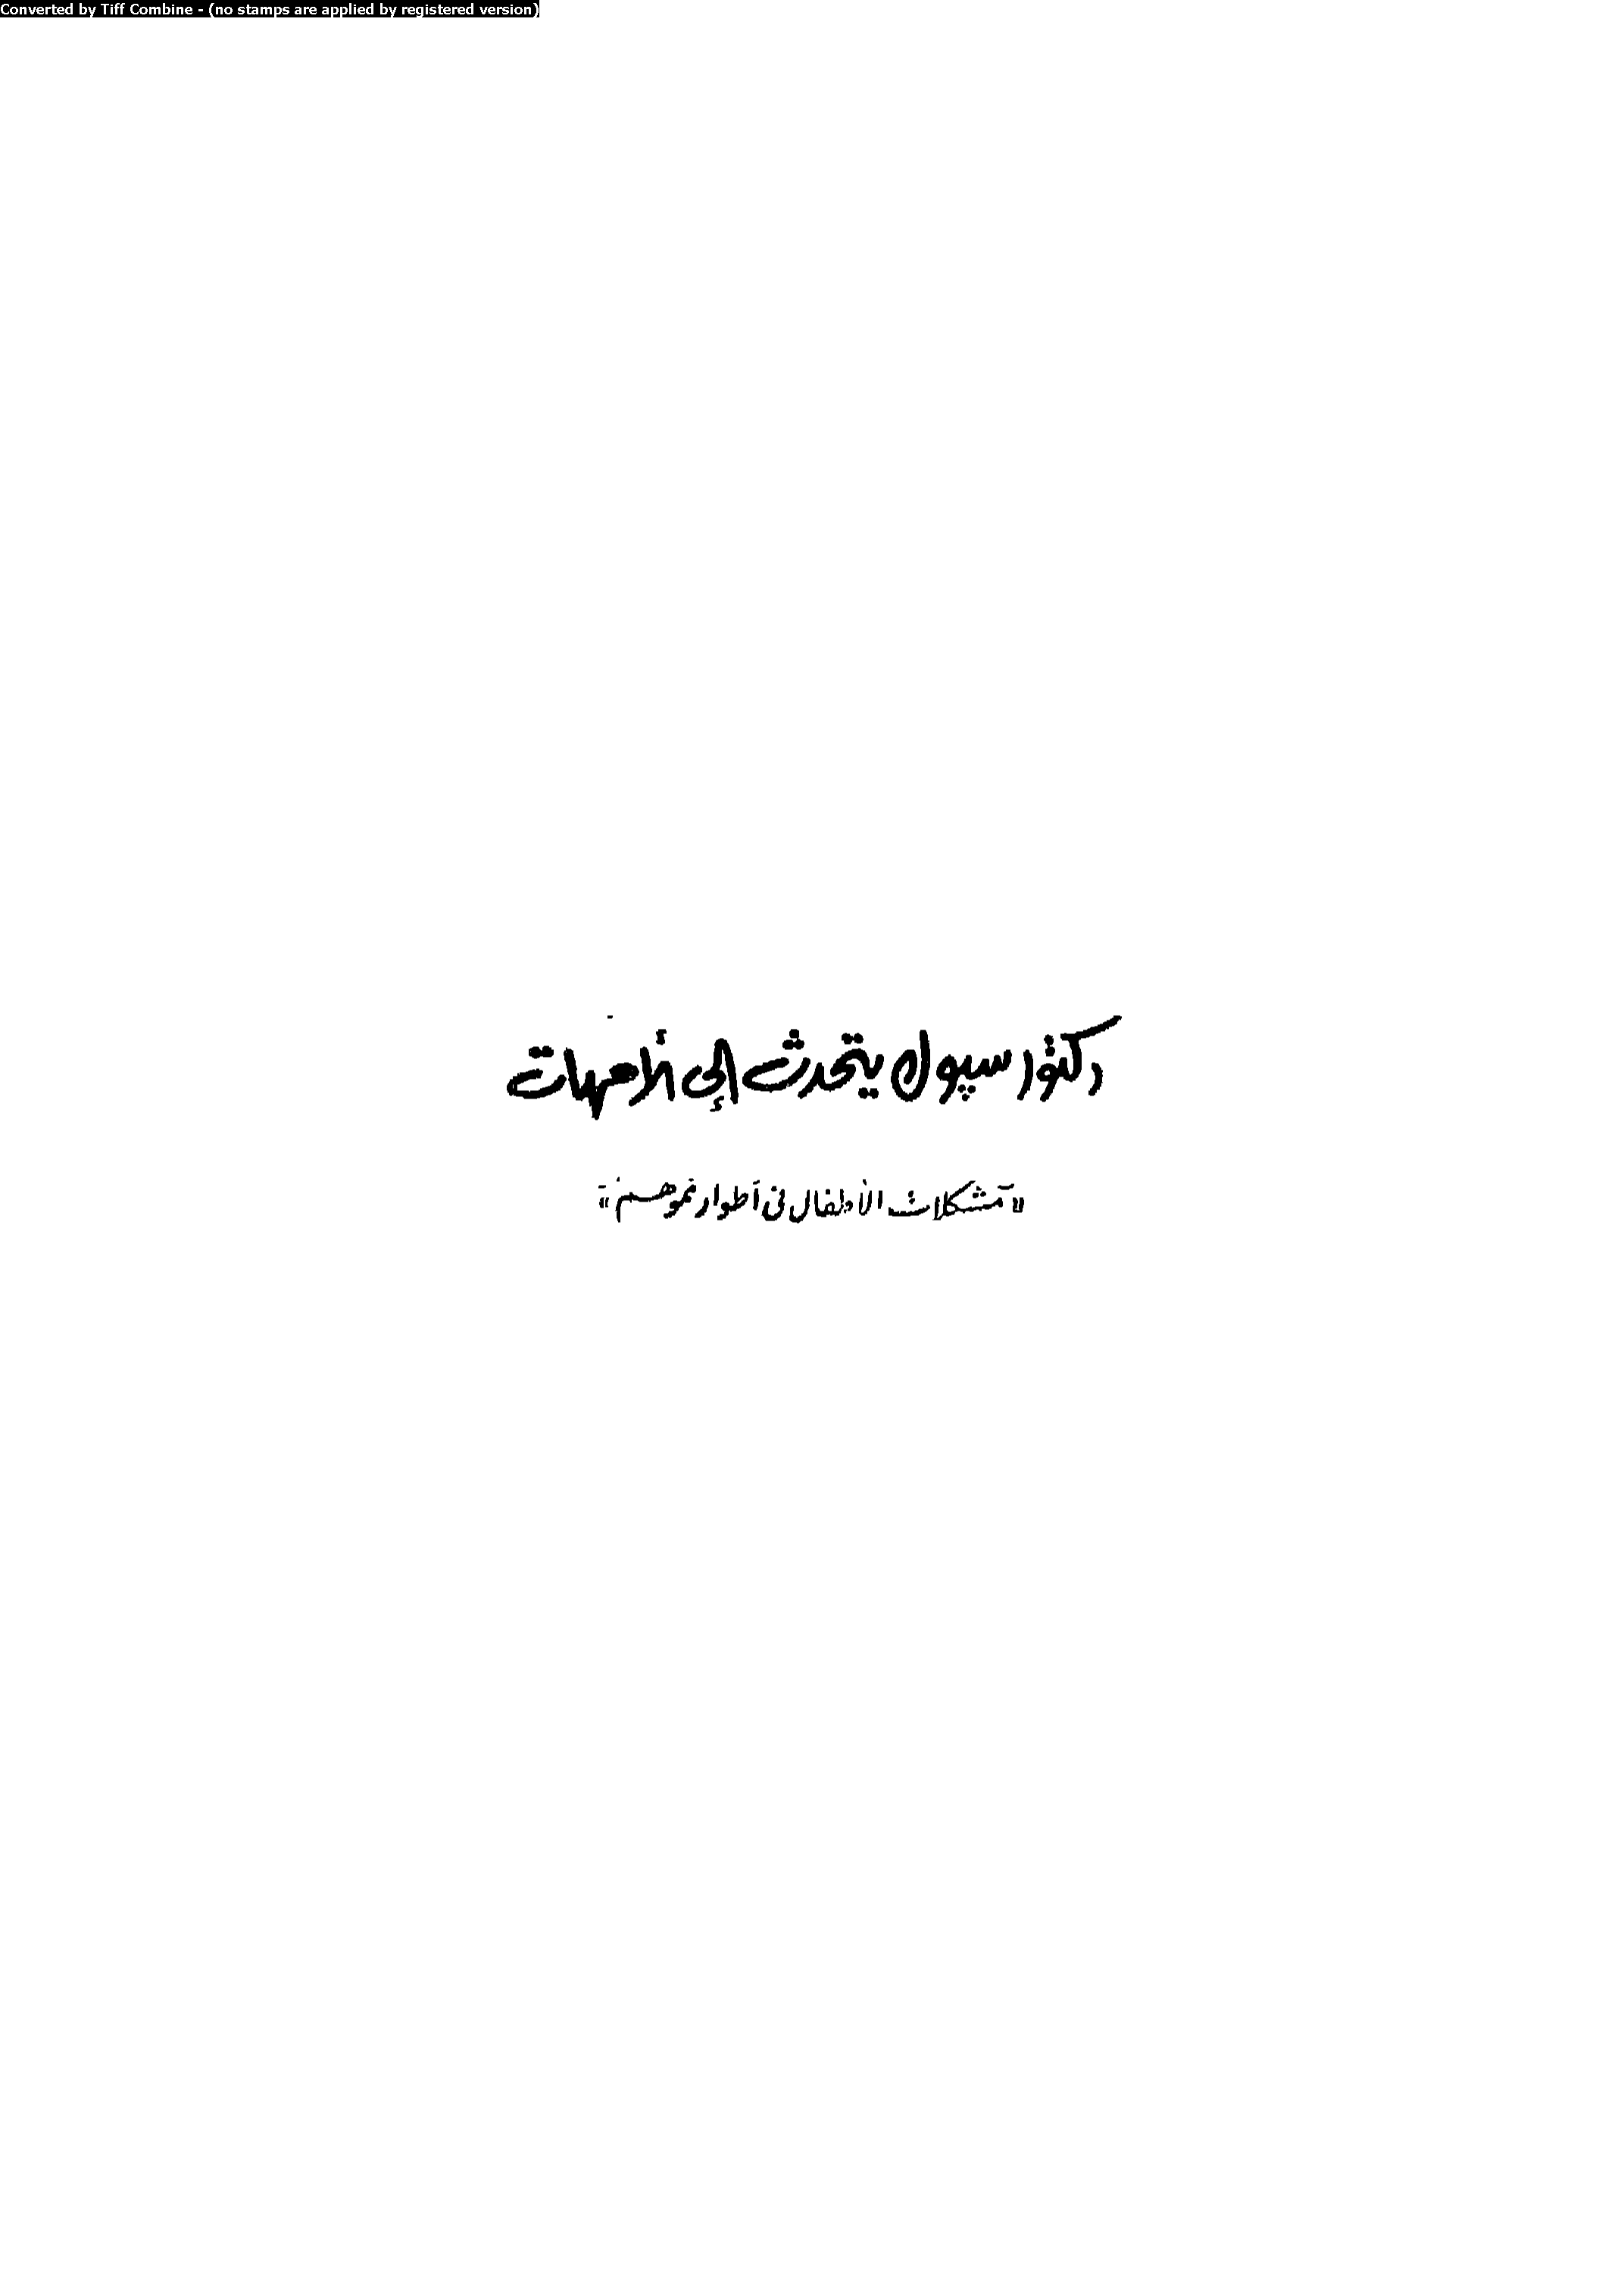 Converted by Tiff Combine - (no stamps are applied by registered version)
دكتور سپول يتحدث إلى الأمهات
"مشكلات الأطفال في أطوار نموهم"